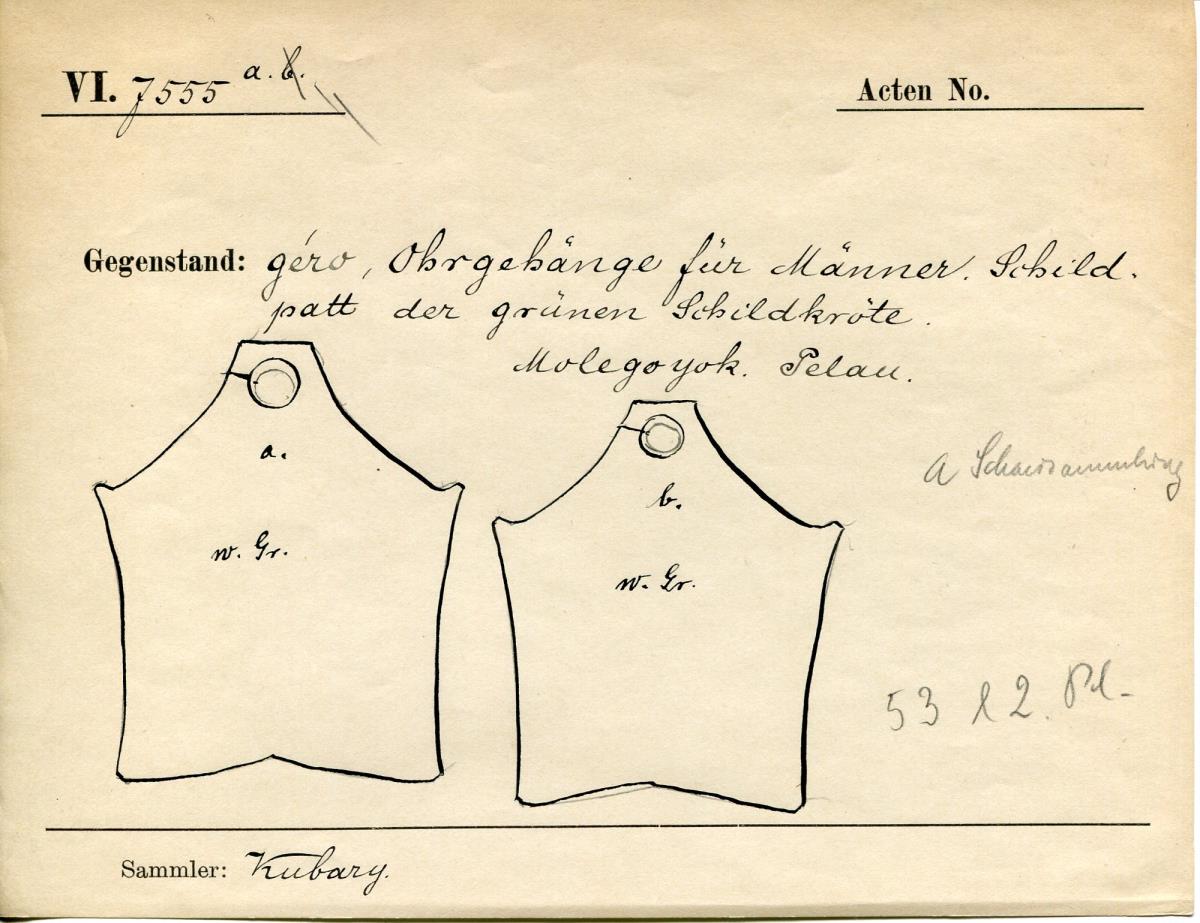 VI. 7555 a. b.
Acten No.
Gegenstand: géro, Ohrgehänge für Männer. Schild-
patt der grünen Schildkröte.
Molegoyok. Pelau.
a.
b.
A Schausammlung
w. Gr.
w. Gr.
53 2.
Sammler: Kubary.